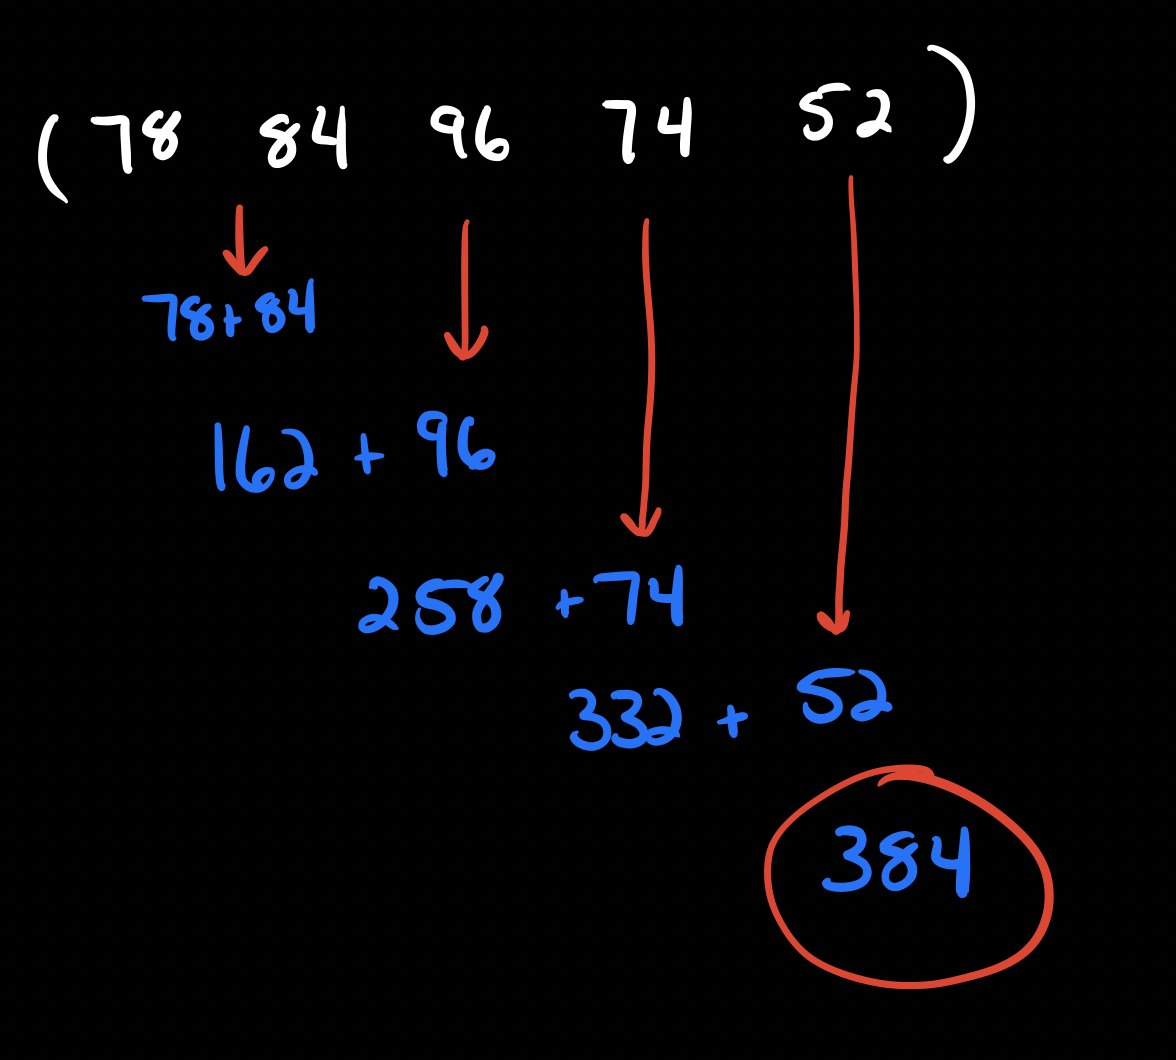 (78 84 96 74 52)
78+84
162 + 96
258 +74
332 + 52
384